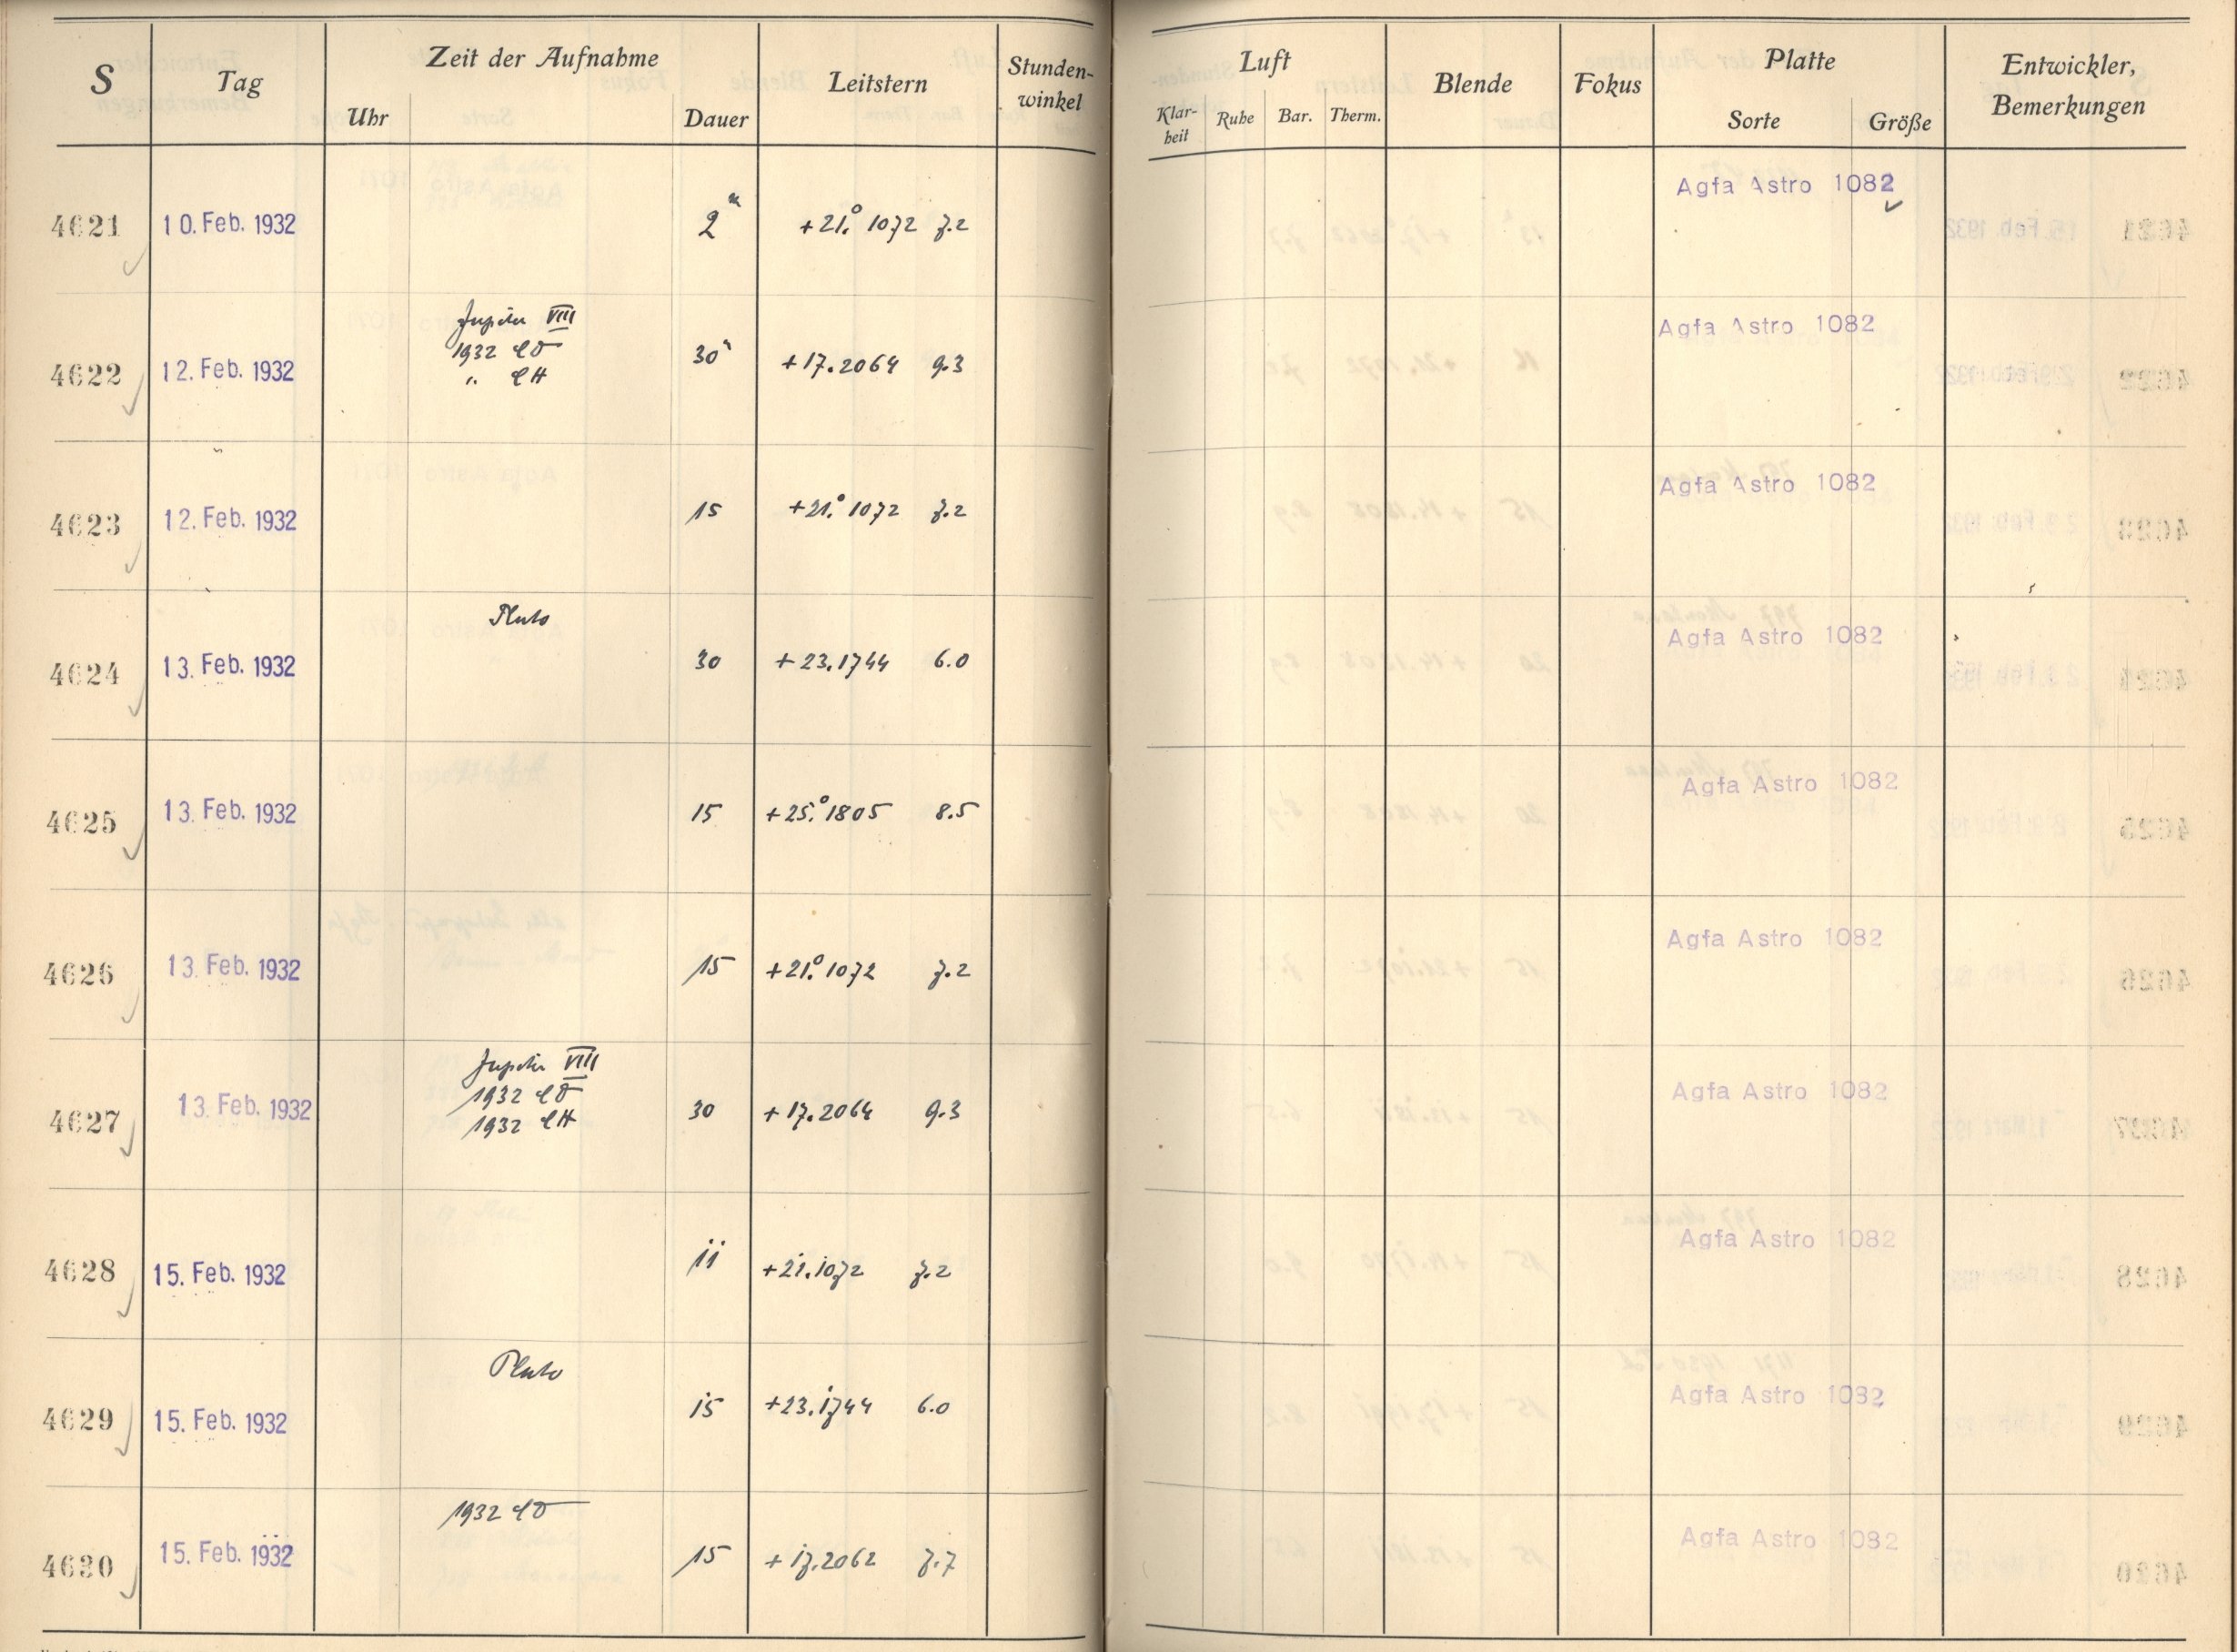 S Tag Zeit der Aufnahme Leitstern Stunden-winkel Luft Blende Fokus Platte Entwickler, Bemerkungen
Uhr Dauer Klar-heit Ruhe Bar. Therm. Sorte Größe
4621 10. Feb. 1932 2ᵐ +21.° 1072 7.2 Agfa Astro 1082
Jupiter VIII
1932
4622 12. Feb. 1932 " CH 30ᵐ +17.2064 9.3 Agfa Astro 1082
4623 12. Feb. 1932 15 +21.° 1072 7.2 Agfa Astro 1082
Pluto
4624 13. Feb. 1932 30 +23.1744 6.0 Agfa Astro 1082
4625 13. Feb. 1932 15 +25.° 1805 8.5 Agfa Astro 1082
4626 13. Feb. 1932 15 +21.° 1072 7.2 Agfa Astro 1082
Jupiter VIII
1932
4627 13. Feb. 1932 1932 CH 30 +17.2064 9.3 Agfa Astro 1082
4628 15. Feb. 1932 11 +21.1072 7.2 Agfa Astro 1082
Pluto
4629 15. Feb. 1932 15 +23.1744 6.0 Agfa Astro 1082
1932
4630 15. Feb. 1932 15 +17.2062 7.7 Agfa Astro 1082